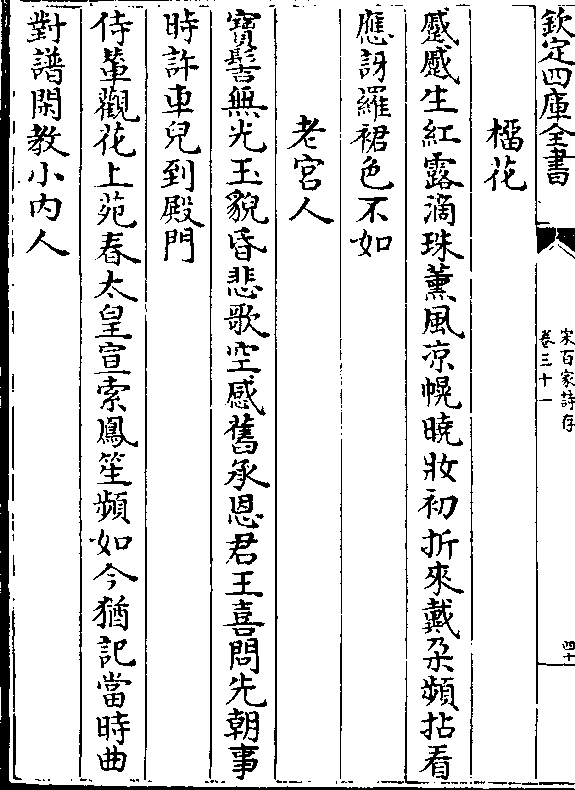 欽定四庫全書
宋百家詩存
卷三十一
四十
橊花
蹙蹙生紅露滴珠薰風凉幌曉妝初折來戴朶頻拈看
應訝羅裙色不如
老宫人
寳髻無光玉貌昏悲歌空感舊承恩君王喜問先朝事
時許車兒到殿門
侍輦觀花上苑春太皇宣索鳳笙頻如今猶記當時曲
對譜閑教小内人